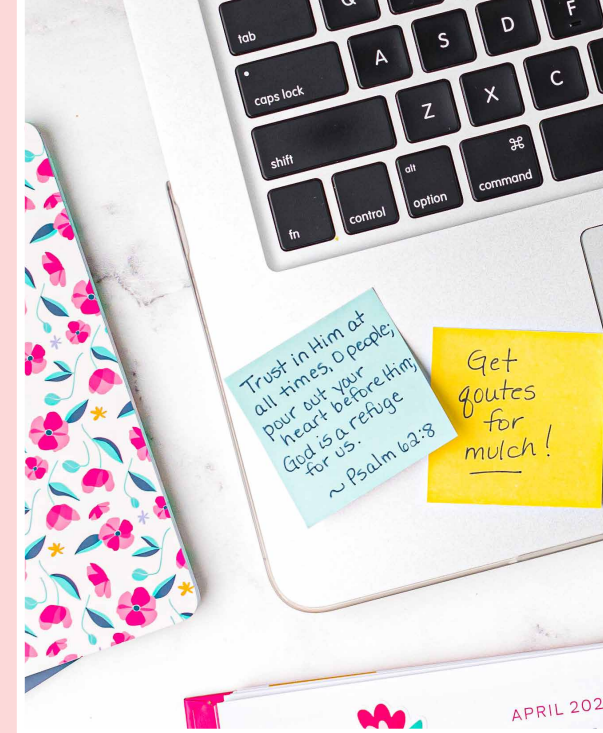 Q
tab
A
S
D
F
caps lock
Z
X
C
shift
⌘
alt
fn
control
option
command
Trust in Him at
all times, O people;
pour out your
heart before Him;
God is a refuge
for us.
~ Psalm 62:8
Get
qoutes
for
mulch!
APRIL 202